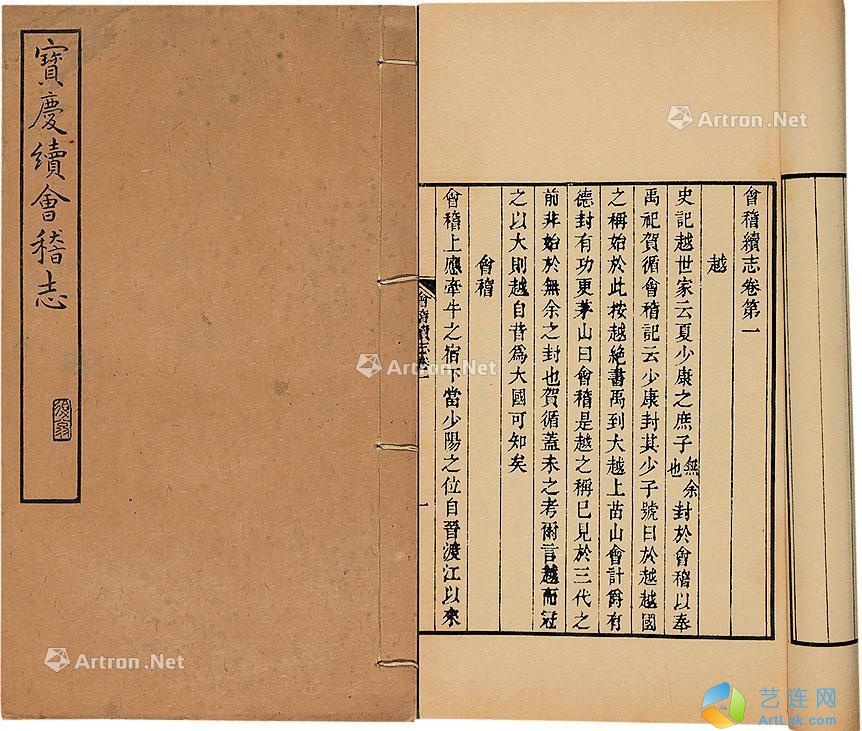 寶慶續會稽志
會稽續志卷第一
越
史記越世家云夏少康之庶子無余也封於會稽以奉
禹祀賀循會稽記云少康封其少子號曰於越越國
之稱始於此按越絕書禹到大越上苗山會計爵有
德封有功更茅山曰會稽是越之稱已見於三代之
前非始於無余之封也賀循蓋未之考爾言越而冠
之以大則越自昔為大國可知矣
會稽
會稽上應牽牛之宿下當少陽之位自晉渡江以來
會稽續志卷一
一
Artron.Net
Artron.Net
Artron.Net
艺连网
ArtLnk.com